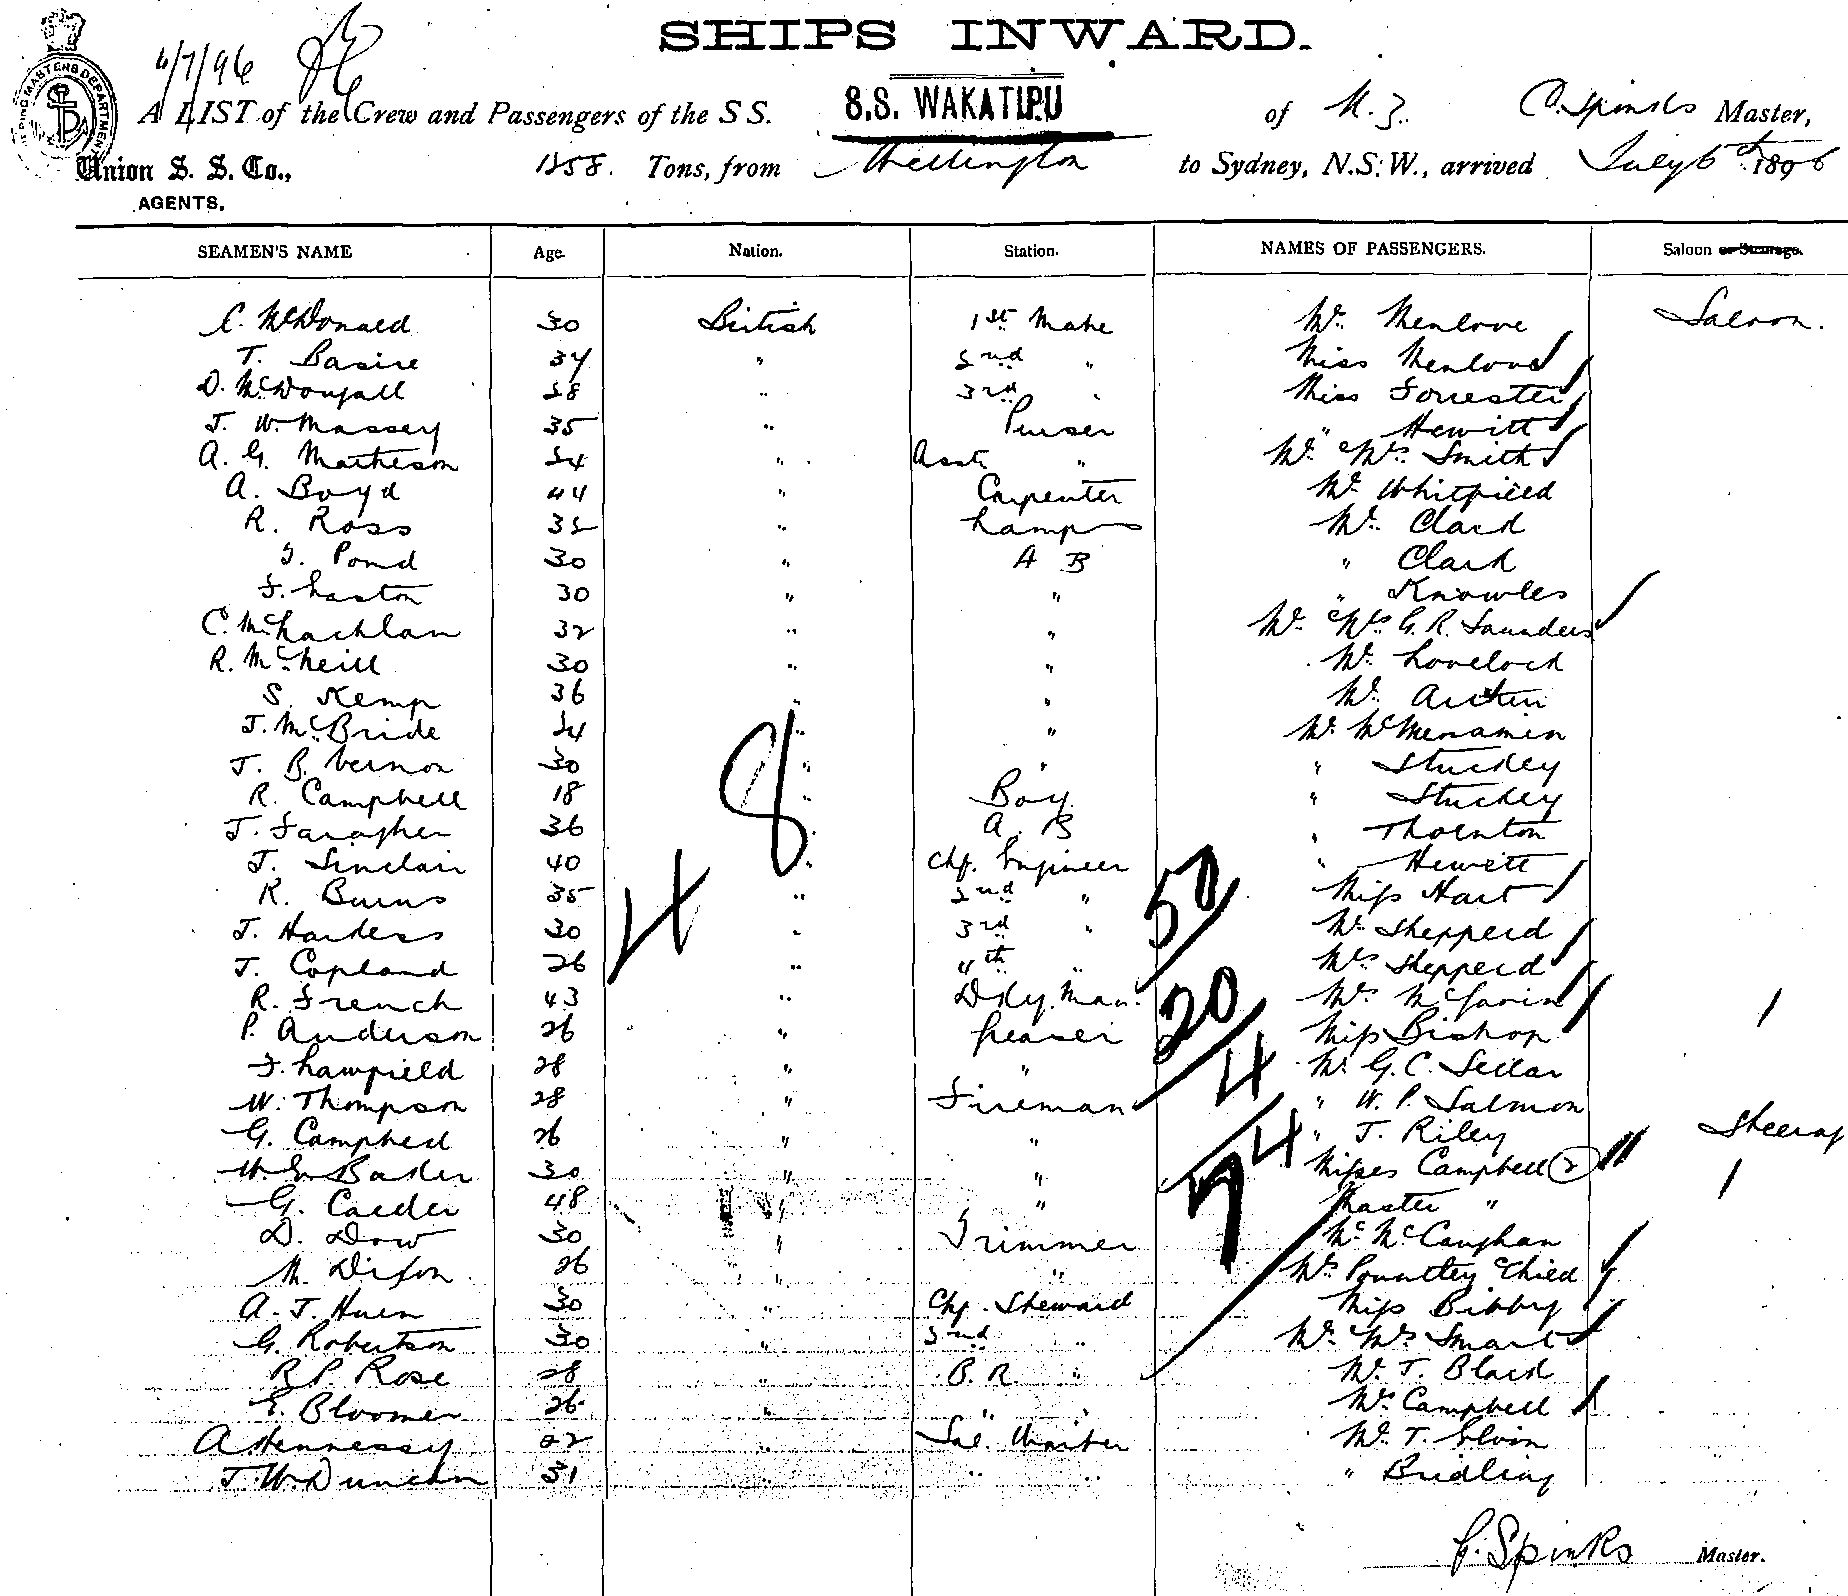 SHIPS INWARD.
6/7/96
A LIST of the Crew and Passengers of the S S. S.S. WAKATIPU of N.Z. C. Spinks Master,
Union S. S. Co., 1258. Tons, from Wellington to Sydney, N.S.W., arrived July 6th 1896
AGENTS.
SEAMEN'S NAME Age. Nation. Station. NAMES OF PASSENGERS. Saloon or Steerage.
C. McDonald 30 British 1st Mate Mr. Menlove Saloon.
T. Basire 34 " 2nd " Miss Menlove
D. McDougall 28 " 3rd " Miss Forrester
J. W. Massey 35 " Purser " Hewitt
A. G. Matheson 24 " Asst " Mr. & Mrs. Smith
A. Boyd 44 " Carpenter Mr. Whitfield
R. Ross 32 " Lamps Mr. Clark
Pond 30 " A B " Clark
F. Laston 30 " " " Knowles
C. McLachlan 32 " " Mr. & Mrs. G. R. Saunders
R. McNeill 30 " " Mr. Lovelock
S. Kemp 36 " " Mr.
J. McBride 24 " " Mr. McMenamin
J. B. Vernon 30 " " " Stuckey
R. Campbell 18 " Boy " Stuckey
J. Faragher 36 " A. B " Thornton
J. Sinclair 40 " Chf. Engineer " Hewett
R. Burns 35 " 2nd " Miss Hart
J. Harders 30 " 3rd " Mr. Shepperd
J. Copland 26 " 4th " Mrs. Shepperd
R. French 43 " Dky. Man. Mrs.
P. Anderson 26 " Greaser Miss Bishop
F. Lawfield 28 " " Mr. G. C. Sellar
W. Thompson 28 " Fireman " W. P. Salmon
G. Campbell 26 " " " J. Riley Steerag
Baker 30 " " Misses Campbell (2)
G. Calder 48 " " Master "
D. Dow 30 " Trimmer McCaughan
M. Dixon 26 " " Mrs. Pountley & Child
A. J. Huen 30 " Chf. Steward Miss Bibby
G. Robertson 30 " 2nd " Mr. & Mrs. Smart
R. P. Rose 28 " B. R. " Mr. T. Black
E. Bloomer 26 " " " Mrs. Campbell
A Hennessy 22 " Sal. Waiter Mr. T. Elvin
J. W. Duncan 31 " " " " Bridling
48
50
20
4
74
C. Spinks Master.